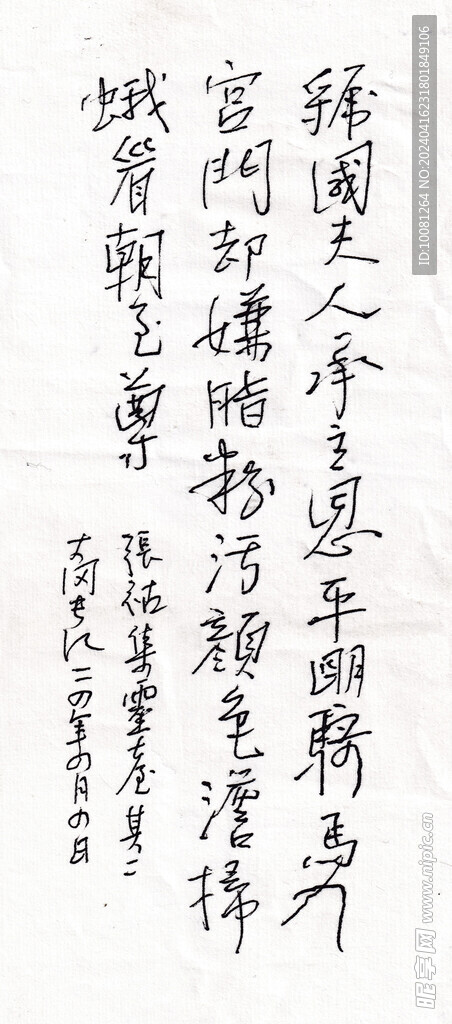 虢國夫人承主恩平明騎馬入
宮門却嫌脂粉污顏色澹掃
蛾眉朝至尊
張祜集靈臺其二
大冈书 二四年四月 日
ID:10081264 NO:20240416231801849106
昵享网 www.nipic.cn